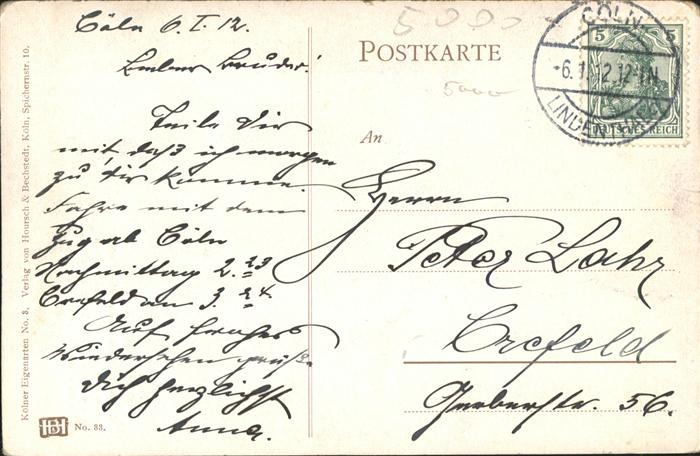 Cöln 6.I.12.
Lieber Bruder!
Teile Dir
mit, daß ich morgen
zu Dir komme.
Fahre mit dem
Zug ab Cöln
Nachmittag 2.23
Crefeld an 3.24
Auf frohes
Wiedersehen grüßt
Dich herzlichst
Anna.
5000
POSTKARTE
5000
An
Herrn
Peter Lahr
Crefeld
Gerberstr. 56.
CÖLN
-6.1.12.12-1N
LINDENTHAL
5 5
DEUTSCHES REICH
Kölner Eigenarten No. 3. Verlag von Hoursch & Bechstedt, Köln, Spichernstr. 10.
HB
No. 33.